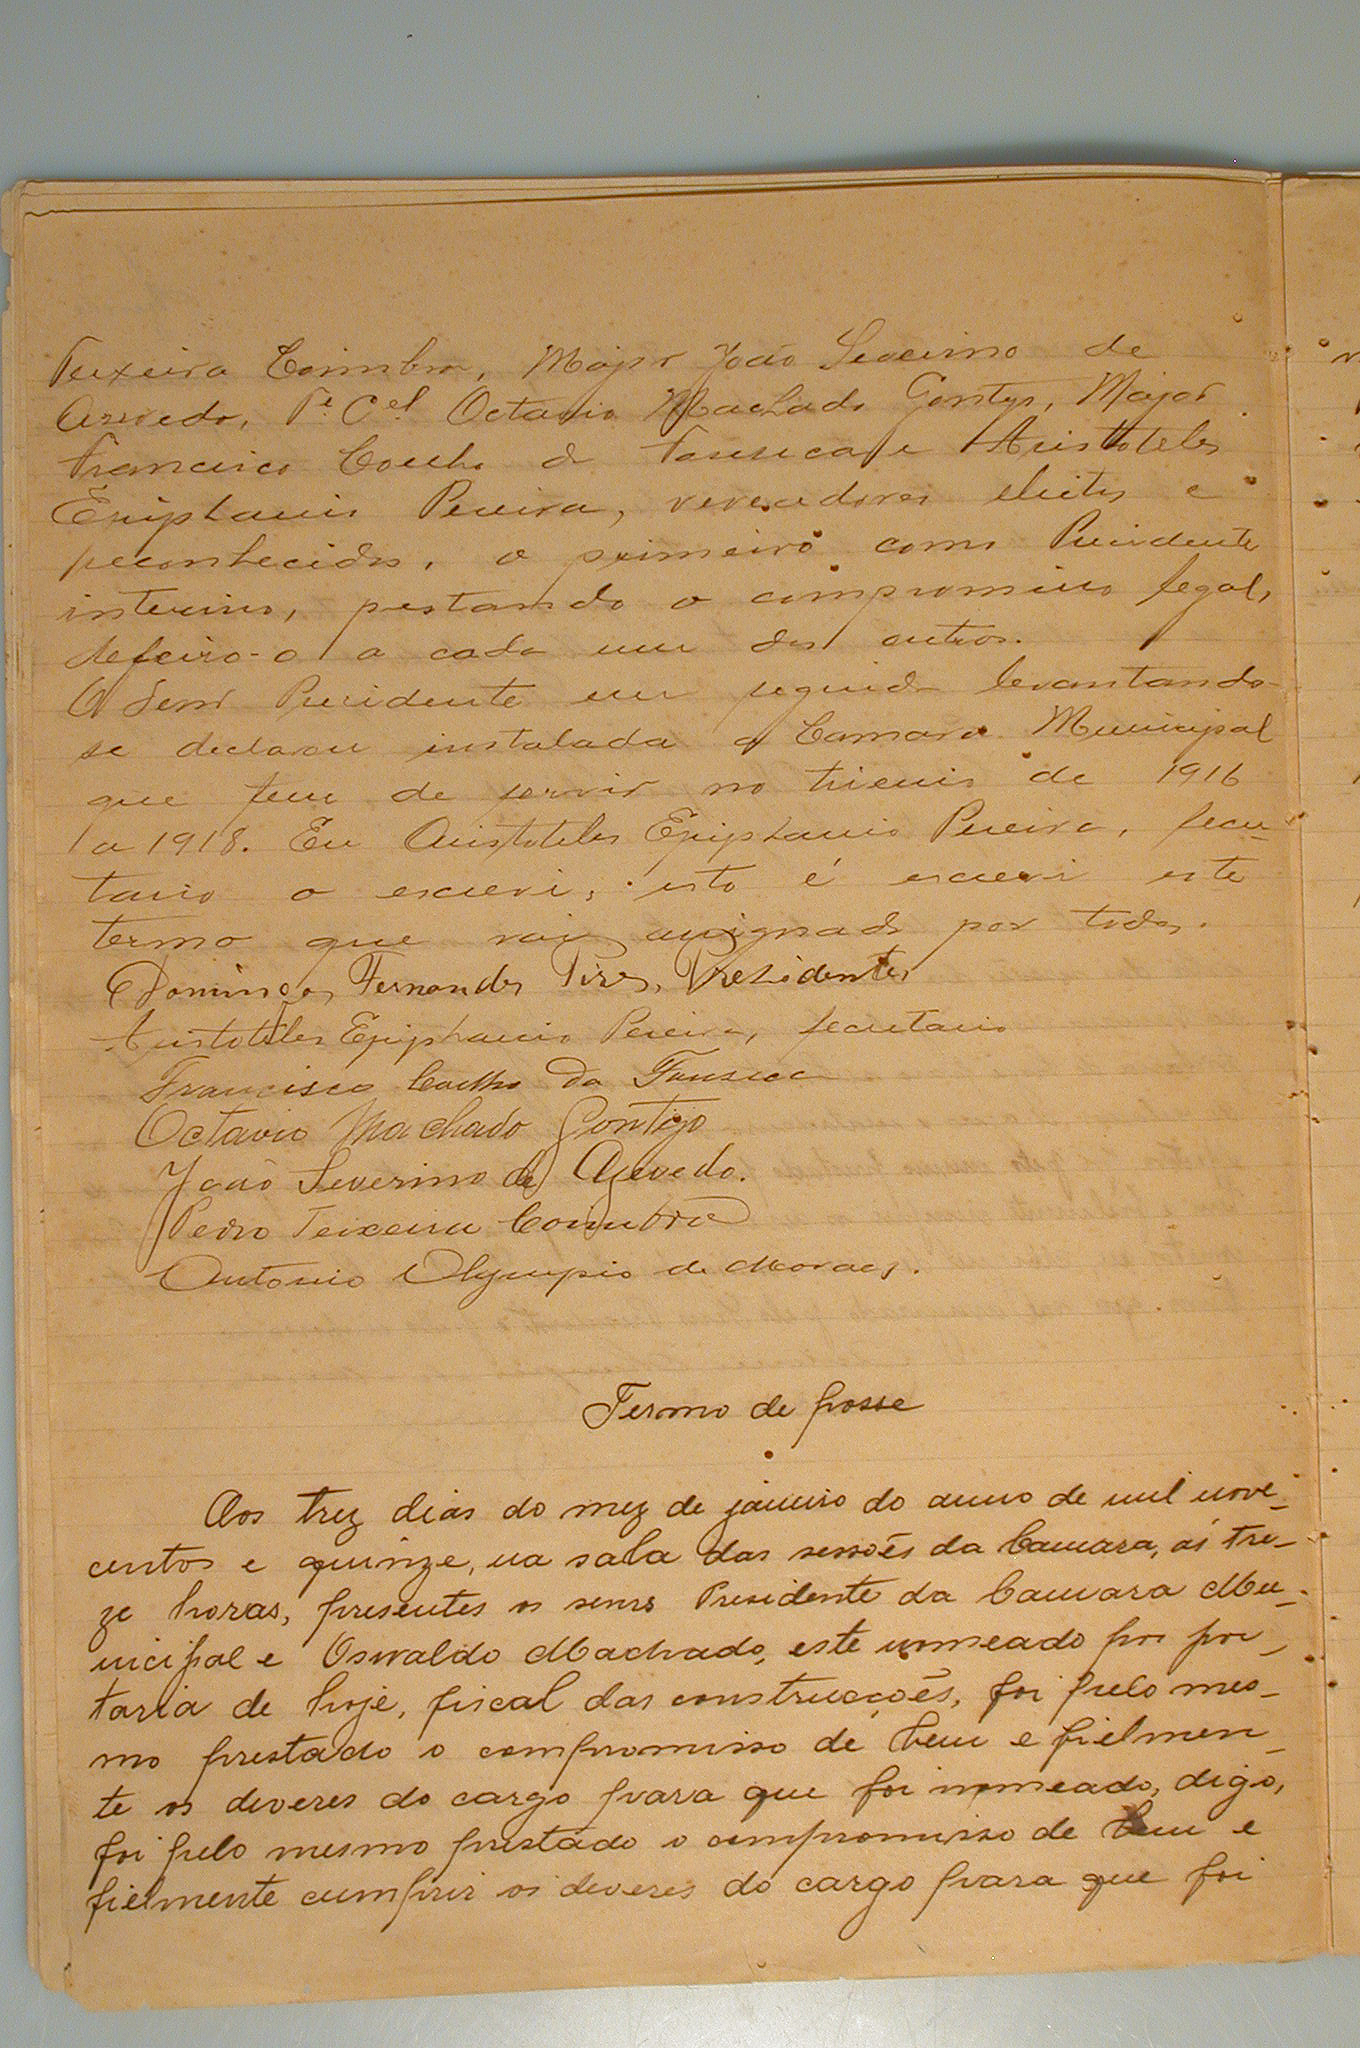 Teixeira Coimbra, Major João Severino de
Azevedo, Te. Cel Octavio Machado Gontijo, Major
Francisco Coelho da Fonseca e Aristoteles
Epiphanio Pereira, vereadores eleitos e
reconhecidos, o primeiro como Presidente
interino, prestando o compromisso legal,
defeiro-o a cada um dos outros.
O Senr Presidente em seguida levantando-
se declarou installada a Camara Municipal
que tem de servir no trienio de 1916
a 1918. Eu Aristoteles Epiphanio Pereira, secre-
tario o escrevi, isto é escrevi este
termo que vai assignado por todos.
Domingos Fernandes Pires, Presidente
Aristoteles Epiphanio Pereira, secretario
Francisco Coelho da Fonseca
Octavio Machado Gontijo
João Severino de Azevedo.
Pedro Teixeira Coimbra
Antonio Olympio de Moraes.
Termo de posse
Aos trez dias do mez de janeiro do anno de mil nove-
centos e quinze, na sala das sessões da Camara, ás tre-
ze horas, presentes os senrs Presidente da Camara Mu-
nicipal e Oswaldo Machado, este nomeado por por-
taria de hoje, fiscal das construcções, foi pelo mes-
mo prestado o compromisso de bem e fielmen-
te os deveres do cargo para que foi nomeado, digo,
foi pelo mesmo prestado o compromisso de bem e
fielmente cumprir os deveres do cargo para que foi